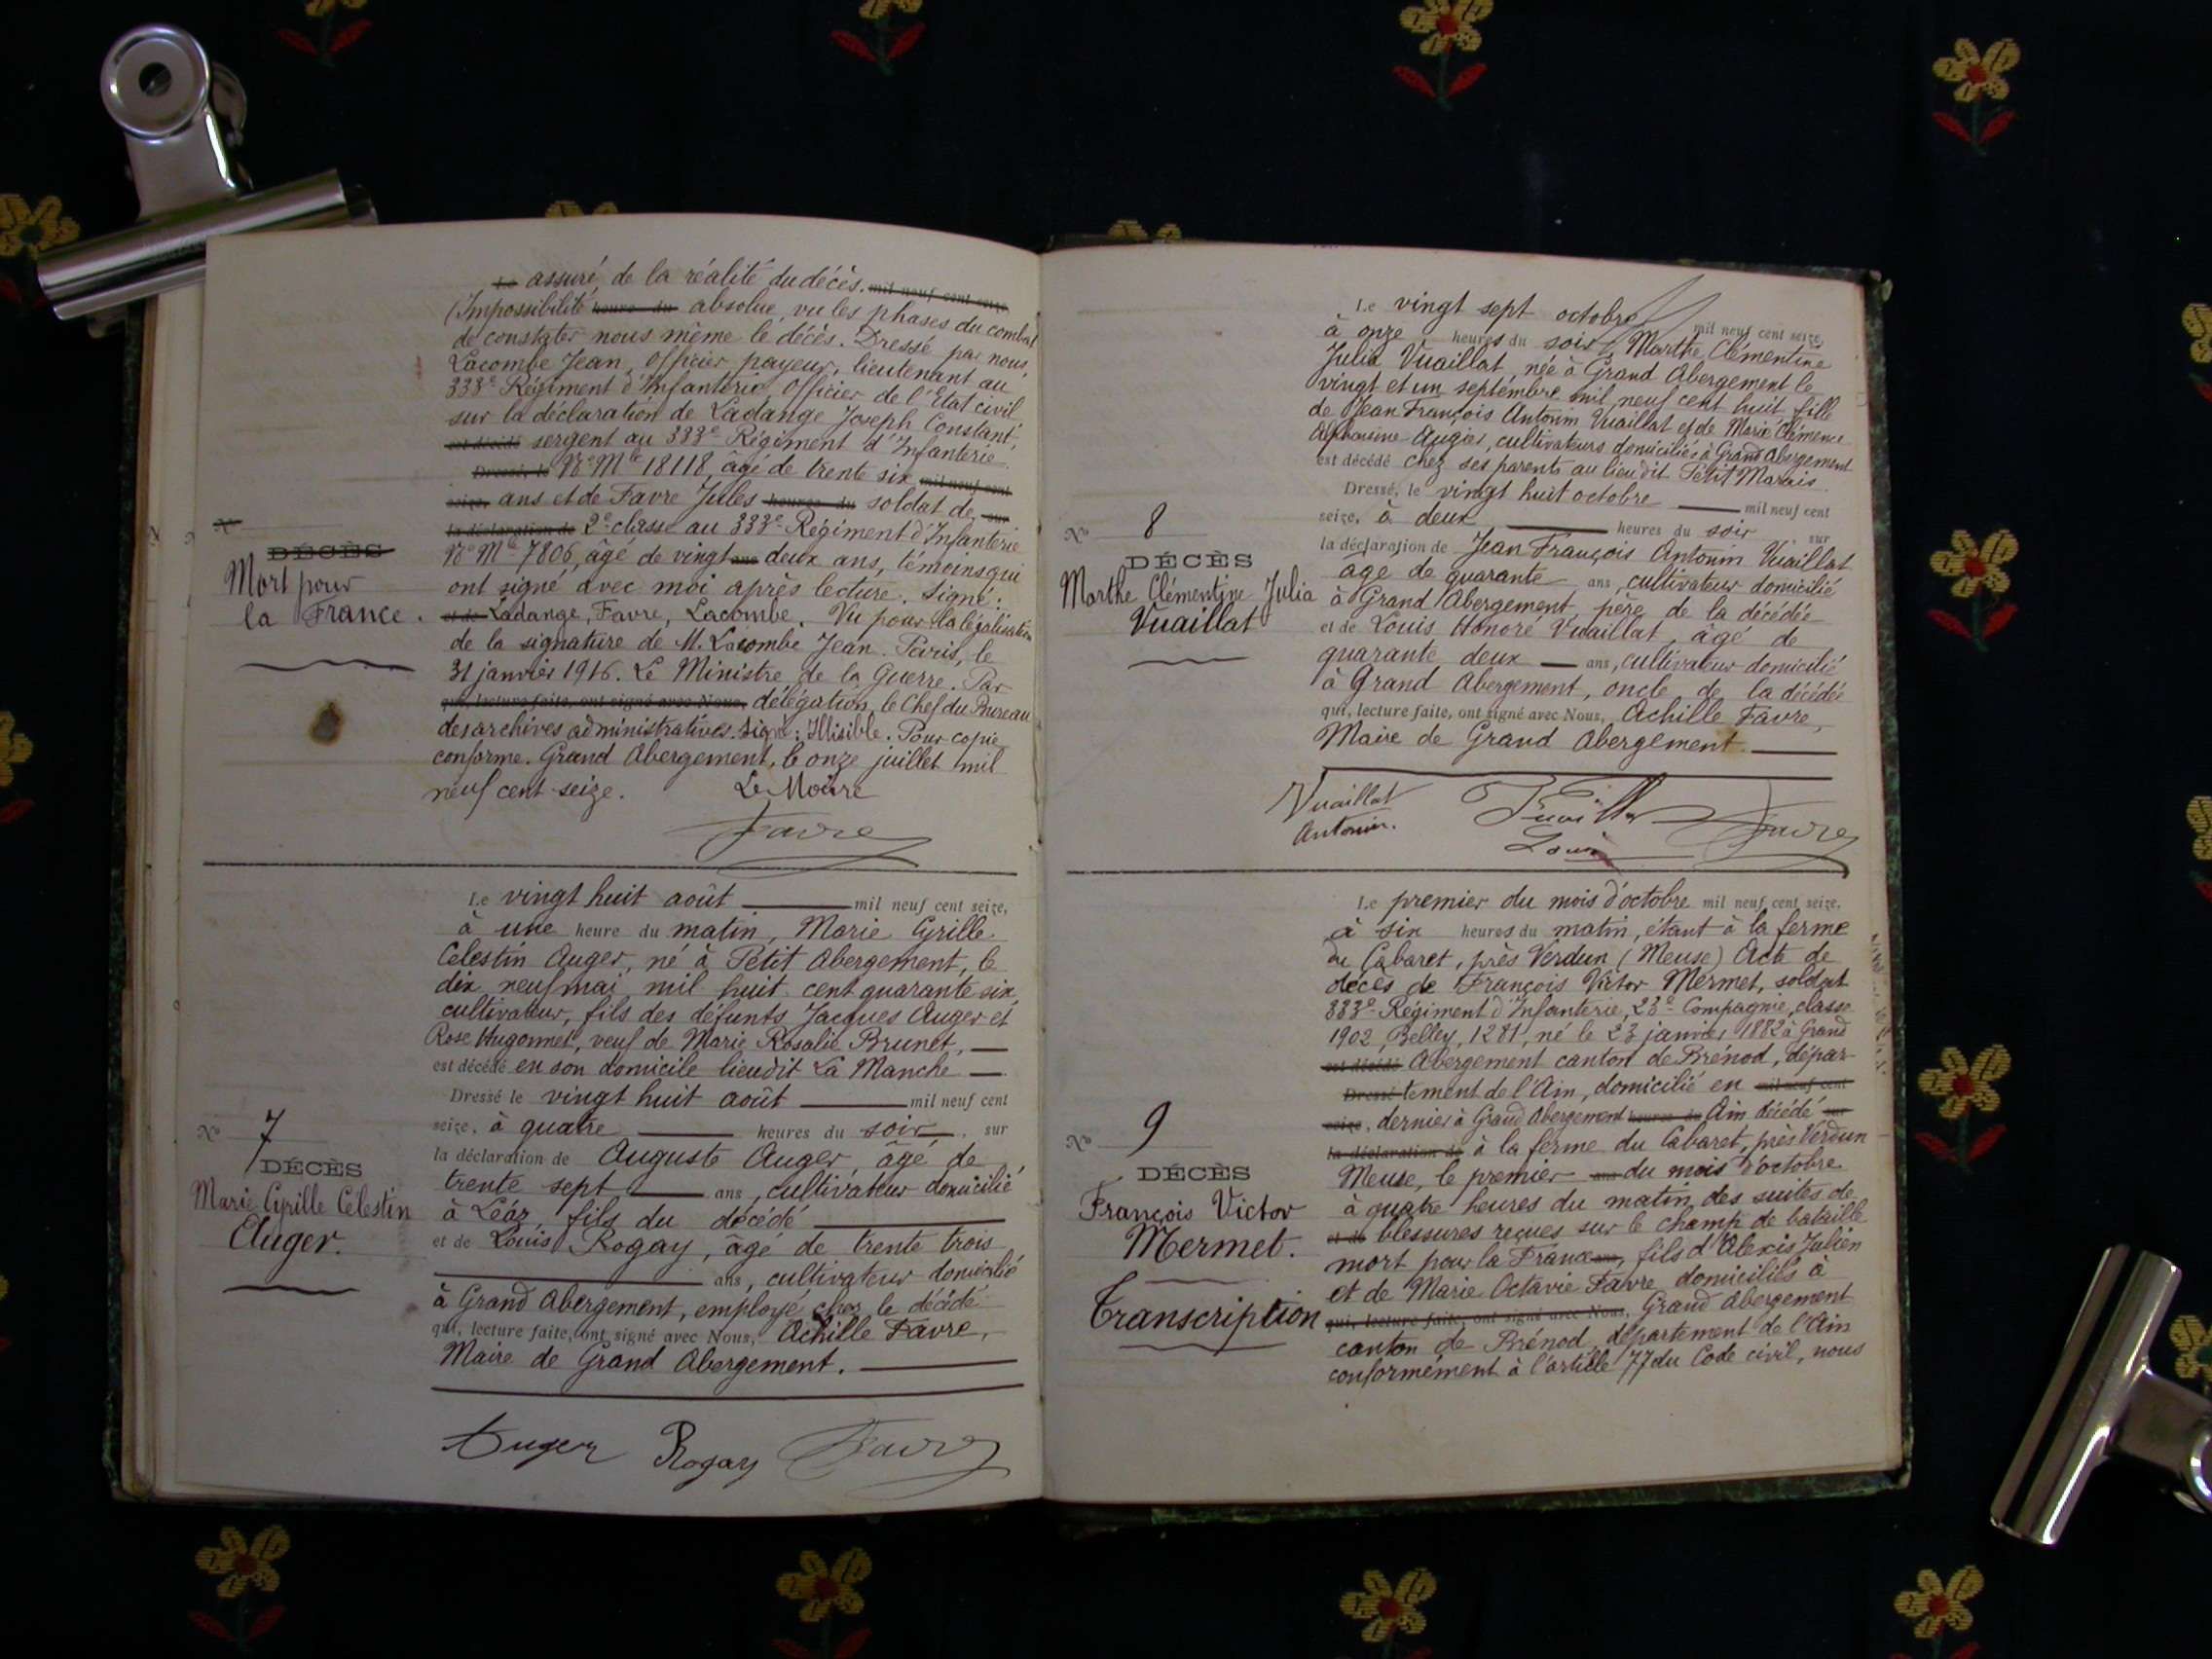 Le assuré de la réalité du décès. mil neuf cent seize
(Impossibilité heure du absolue, vu les phases du combat
de constater nous même le décès. Dressé par nous,
Lacombe Jean, Officier payeur, lieutenant au
333e Régiment d'Infanterie, Officier de l'Etat civil
sur la déclaration de Ladange Joseph Constant,
est décédé sergent au 333e Régiment d'Infanterie
Dressé, le No Mle 18118, âgé de trente six mil neuf cent
seize, ans et de Favre Jules heures du soldat de sur
la déclaration de 2e classe au 333e Régiment d'Infanterie
No Mle 7806, âgé de vingt ans deux ans, témoins qui
ont signé avec moi après lecture. Signé:
et de Ladange, Favre, Lacombe. Vu pour la légalisation
de la signature de M. Lacombe Jean. Paris, le
31 janvier 1916. Le Ministre de la Guerre. Par
qui, lecture faite, ont signé avec Nous, délégation, le Chef du Bureau
des archives administratives. Signé: Illisible. Pour copie
conforme. Grand Abergement, le onze juillet mil
neuf cent seize. Le Maire
Favre
No
DÉCÈS
Mort pour
la France.
Le vingt huit août mil neuf cent seize,
à une heure du matin, Marie Cyrille
Celestin Auger, né à Petit Abergement, le
dix neuf mai mil huit cent quarante six,
cultivateur, fils des défunts Jacques Auger et
Rose Hugonnet, veuf de Marie Rosalie Brunet,
est décédé en son domicile lieudit La Manche
Dressé le vingt huit août mil neuf cent
seize, à quatre heures du soir, sur
la déclaration de Auguste Auger, âgé de
trente sept ans, cultivateur domicilié
à Léaz, fils du décédé
et de Louis Rogay, âgé de trente trois
ans, cultivateur domicilié
à Grand Abergement, employé chez le décédé
qui, lecture faite, ont signé avec Nous, Achille Favre,
Maire de Grand Abergement.
Auger Rogay Favre
No 7
DÉCÈS
Marie Cyrille Célestin
Auger.
Le vingt sept octobre mil neuf cent seize,
à onze heures du soir, Marthe Clémentine
Julia Vuaillat, née à Grand Abergement le
vingt et un septembre mil neuf cent huit fille
de Jean François Antonin Vuaillat et de Marie Clémence
Alphonsine Augier, cultivateurs domiciliés à Grand Abergement
est décédé chez ses parents au lieu dit Petit Marais
Dressé, le vingt huit octobre mil neuf cent
seize, à deux heures du soir, sur
la déclaration de Jean François Antonin Vuaillat
agé de quarante ans, cultivateur domicilié
à Grand Abergement, père de la décédée
et de Louis Honoré Vuaillat, âgé de
quarante deux ans, cultivateur domicilié
à Grand Abergement, oncle de la décédée
qui, lecture faite, ont signé avec Nous, Achille Favre,
Maire de Grand Abergement.
Vuaillat
Antonin.
Louis
Favre
No 8
DÉCÈS
Marthe Clémentine Julia
Vuaillat
Le premier du mois d'octobre mil neuf cent seize,
à six heures du matin, étant à la ferme
du Cabaret, près Verdun (Meuse) Acte de
décès de François Victor Mermet, soldat
333e Régiment d'Infanterie, 23e Compagnie, classe
1902, Belley, 1281, né le 23 janvier 1882 à Grand
est décédé Abergement canton de Brénod, dépar-
Dressé tement de l'Ain, domicilié en mil neuf cent
seize, dernier à Grand Abergement heures du Ain décédé sur
la déclaration de à la ferme du Cabaret, près Verdun
Meuse, le premier ans du mois d'octobre
à quatre heures du matin des suites de
et de blessures reçues sur le champ de bataille
mort pour la France ans, fils d'Alexis Julien
et de Marie Octavie Favre domiciliés à
qui, lecture faite, ont signé avec Nous, Grand Abergement
canton de Brénod, département de l'Ain
conformément à l'article 77 du Code civil, nous
No 9
DÉCÈS
François Victor
Mermet.
Transcription